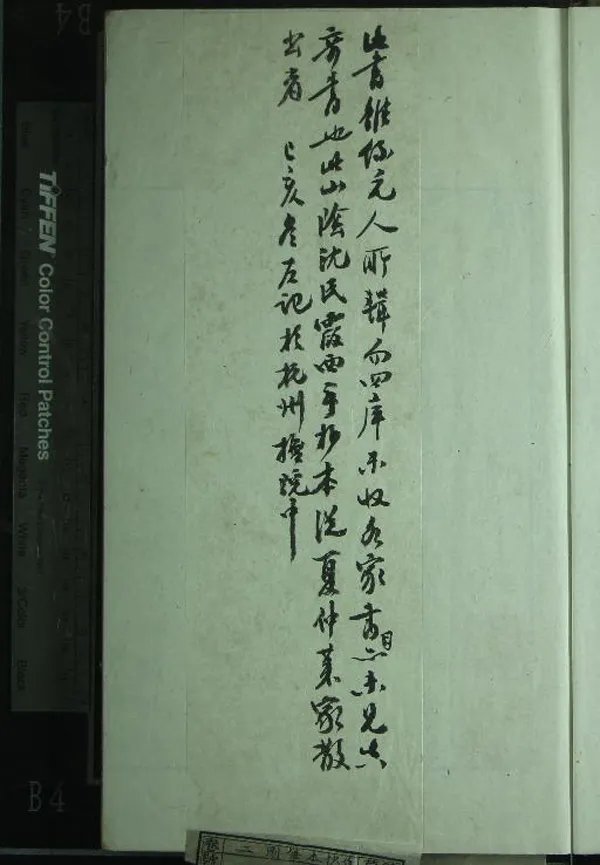 此書雖係元人所輯而四庫未收各家書目亦未見真
奇書也此山陰沈氏霞西手抄本從夏仲家散
出者 己亥冬記於杭州中
TIFFEN Color Control Patches
Blue Cyan Green Yellow Red Magenta White 3/Color Black
B4
B4